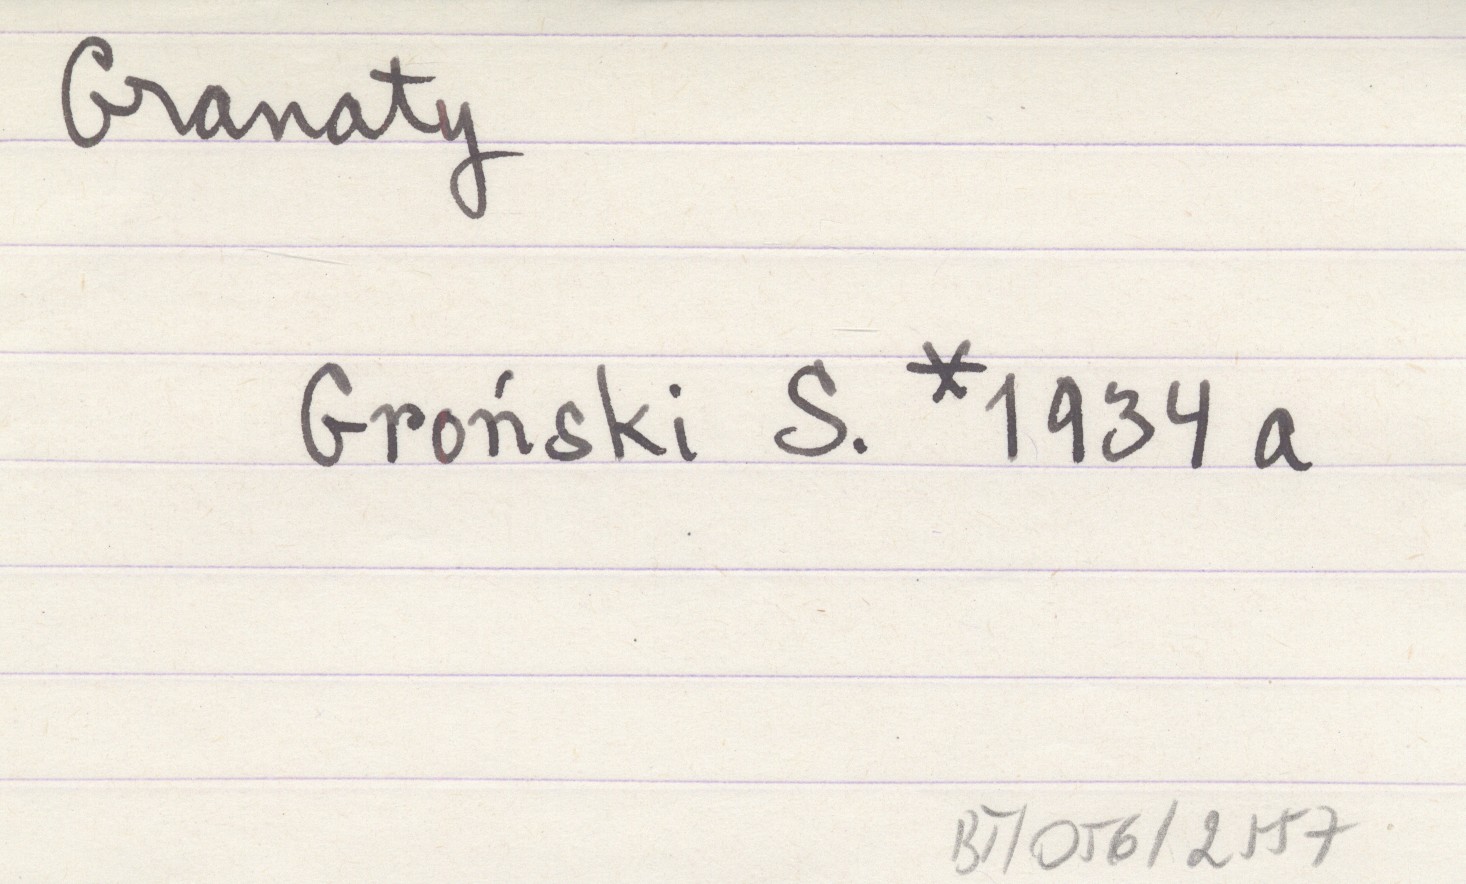 Granaty
Groński S. *1934 a
BT/056/2557